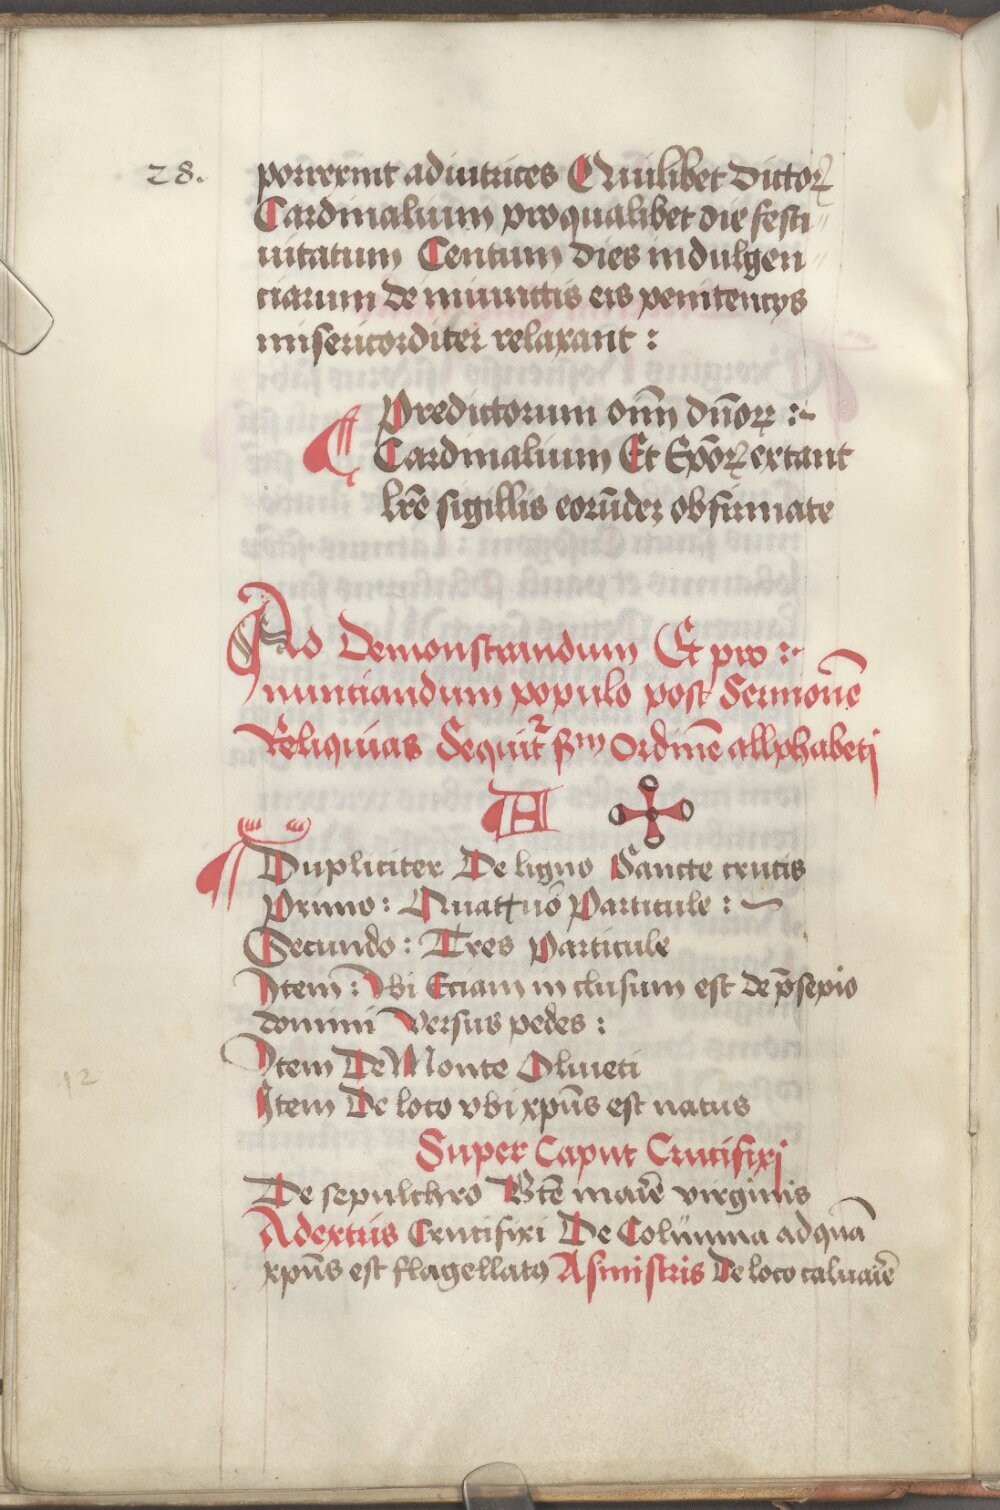 28.
porrexint adiutrices Quilibet Dictoꝝ
Cardinalium pro qualibet die festi
uitatum Centum dies indulgen
ciarum de iniunctis eis penitencijs
misericorditer relaxant :
Predictorum om̄m dn̄oꝝ :~
Cardinalium Et Ep̄oꝝ extant
lr̄e sigillis eorūdez obfirmate
Ad Demonstrandum Et pro :
nunciandum populo post Sermonē
Reliquias Sequit᷑ sm̄ Ordinē allphabeti
A
Dupliciter De ligno Sancte crucis
Primo : Quattuō Particule :~
Secundo : Tres Particule
Item : Vbi Eciam inclusum est de p̄sepio
domini Versus pedes :
Item De Monte Oliueti
12
Item De loco vbi xp̄us est natus
Super Caput Crucifixi
De sepulchro Btē marīe virginis
Adextris Crucifixi De Columna ad quā
xp̄us est flagellatꝰ Asinistris De loco caluariē